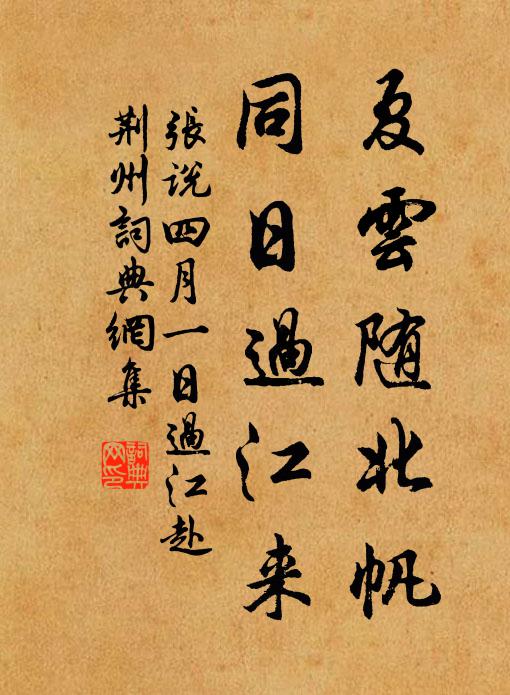 夏雲随北帆
同日過江来
張説四月一日過江赴
荆州詞典網集
詞典
网印